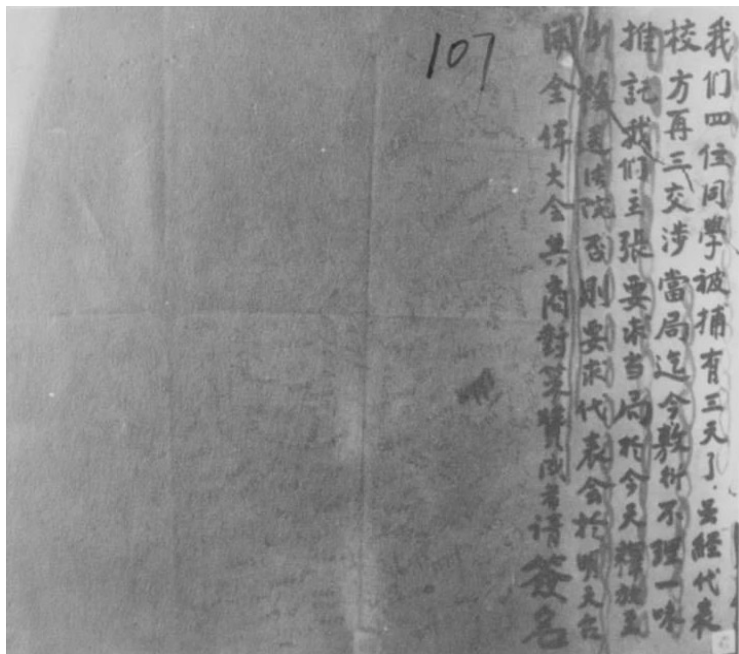 我们四位同學被捕有三天了.虽經代表
校方再三交涉當局迄今敷衍不理一味
推託我们主張要求当局於今天釋放至
少送法院否則要求代表会於明天召
開全体大会共商對策贊成者请簽名
107